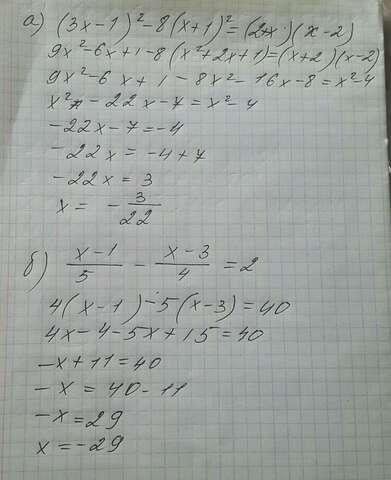 а) (3x-1)²-8(x+1)²=(2+x)(x-2)
9x²-6x+1-8(x²+2x+1)=(x+2)(x-2)
9x²-6x+1-8x²-16x-8=x²-4
x²-22x-7=x²-4
-22x-7=-4
-22x=-4+7
-22x=3
x=-3/22
б) (x-1)/5-(x-3)/4=2
4(x-1)-5(x-3)=40
4x-4-5x+15=40
-x+11=40
-x=40-11
-x=29
x=-29